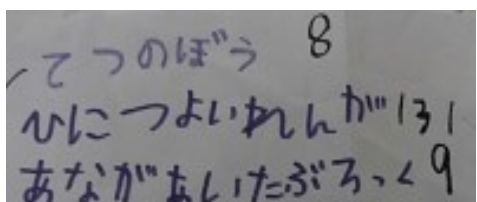 てつのぼう 8
ひにつよいれんが 131
あながあいたぶろっく 9